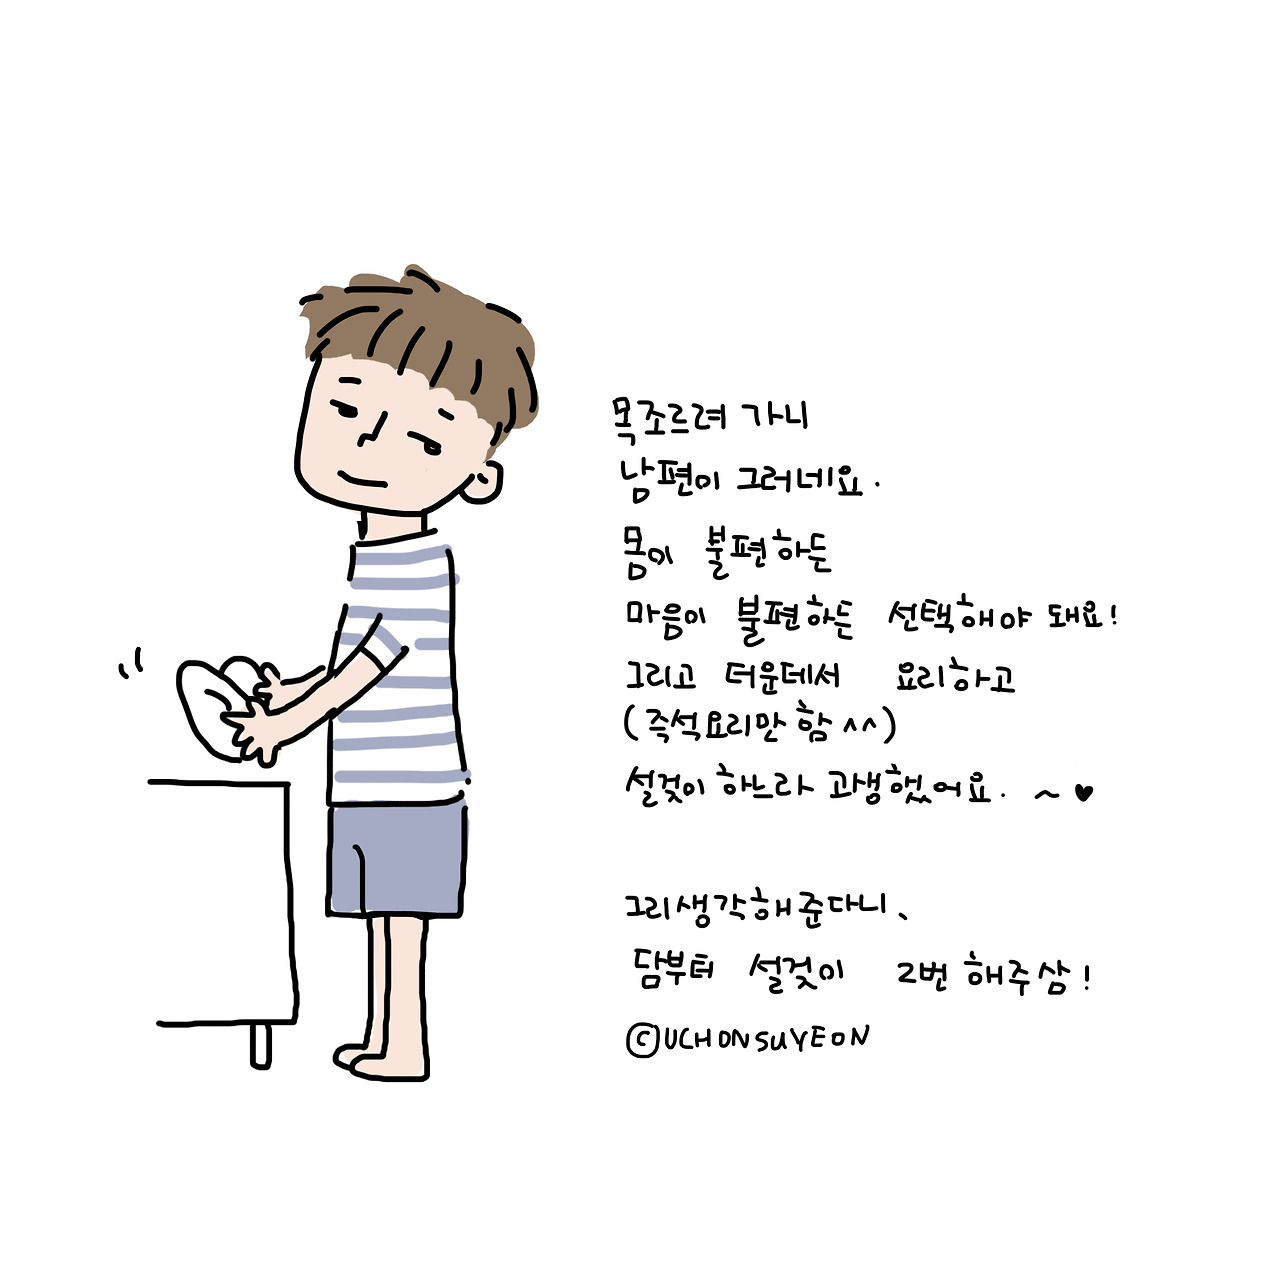 목조르려 가니
남편이 그러네요.
몸이 불편하든
마음이 불편하든 선택해야 돼요!
그리고 더운데서 요리하고
(즉석요리만 함 ^^)
설겆이 하느라 고생했어요. ~ ♥
그리생각해준다니、
담부터 설겆이 2번 해주삼!
©UCHONSUYEON